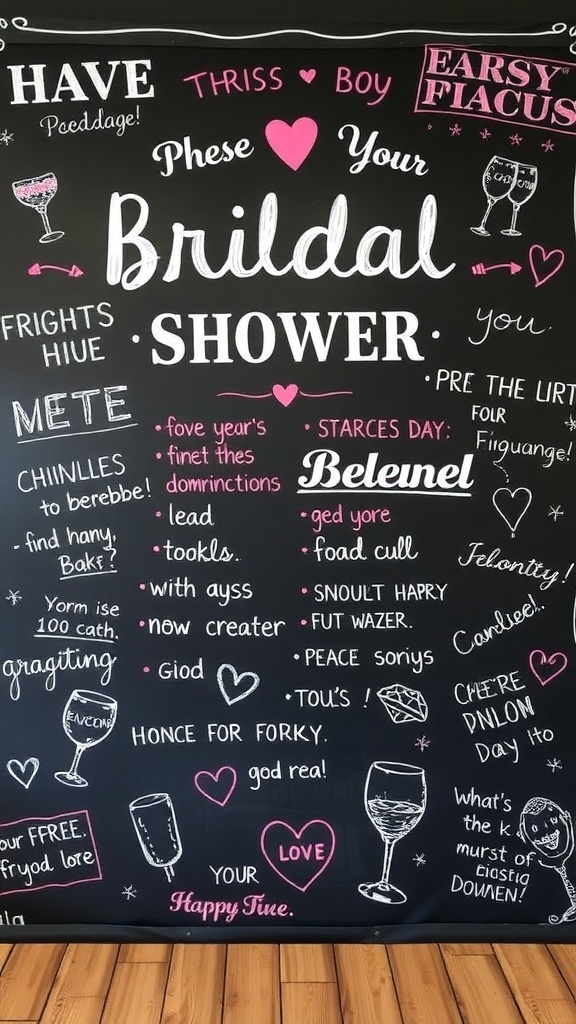 HAVE
Pceddage!
THRISS BOY
EARSY
FIACUS
Phese Your
Brildal
SHOWER
FRIGHTS
HIUE
you.
METE
PRE THE LIRT
FOLR
Fiiguange!
fove year's
finet thes
domrinctions
lead
tookls.
with ayss
now creater
Giod
STARCES DAY:
Beleunel
ged yore
foad cull
SNOULT HAPRY
FUT WAZER.
PEACE soriys
TOU'S !
CHIINLLES
to berebbe!
find hany,
Bakf?
Yorm ise
100 cath.
gragiting
Jelontty!
Candlee!.
CHE'RE
DNLOW
Day Ito
HONCE FOR FORKY.
god rea!
What's
the k
murst of
DOWNEN!
our FFREE.
fryod lore
LOVE
YOUR
Happy Tiue.